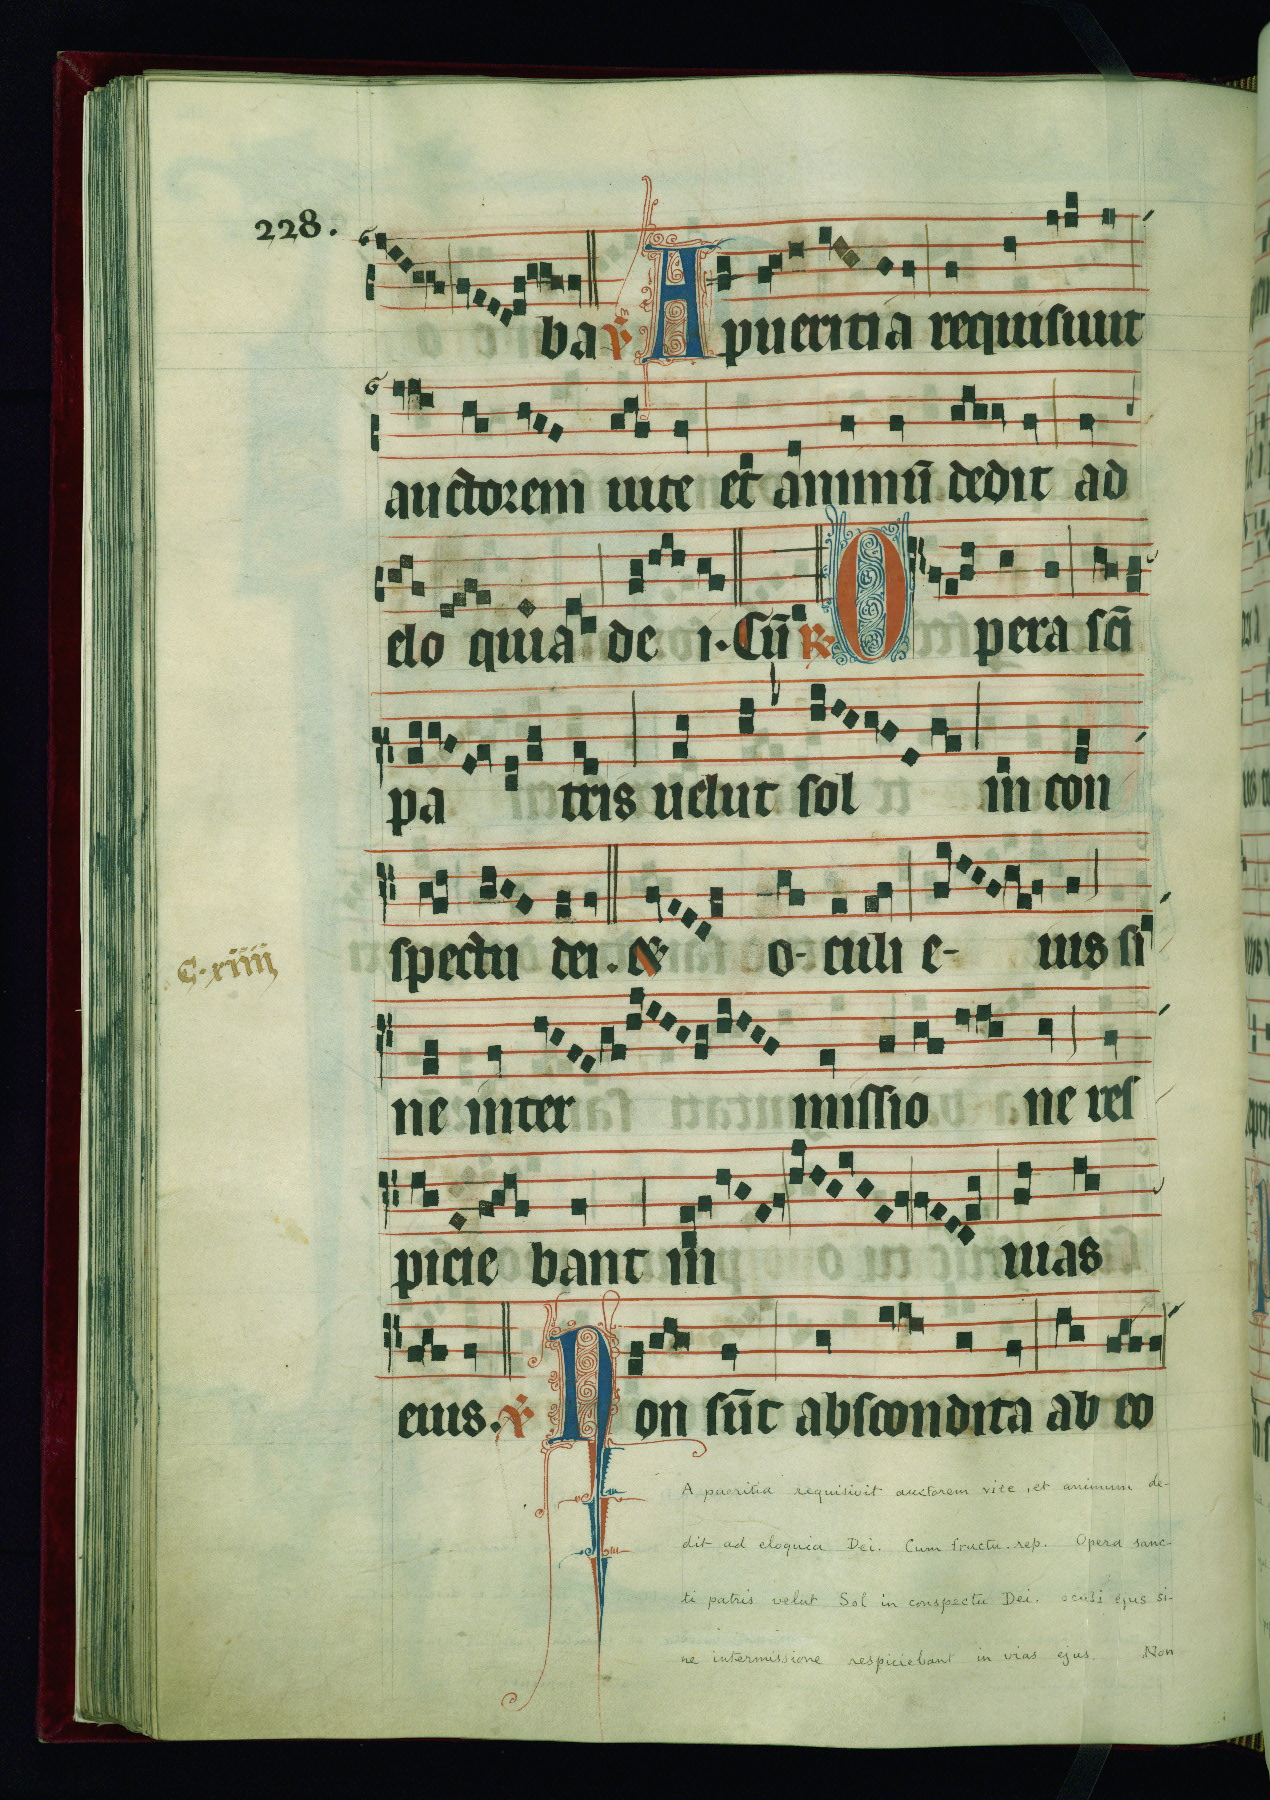 228.
ba ℣ A pueritia requisiuit
auctorem uite et animū dedit ad
elo quia de i. Cū ℟ O pera scī
pa tris uelut sol in con
spectu dei. & o- culi e- ius si
C. xiiii
ne inter missio ne res
picie bant in uias
eius. ℣ N on sūt abscondita ab eo
A pueritia requisivit auctorem vite, et animum de-
dit ad eloquia Dei. Cum fructu. rep. Opera sanc-
ti patris velut Sol in conspectu Dei. oculi ejus si-
ne intermissione respiciebant in vias ejus. Non